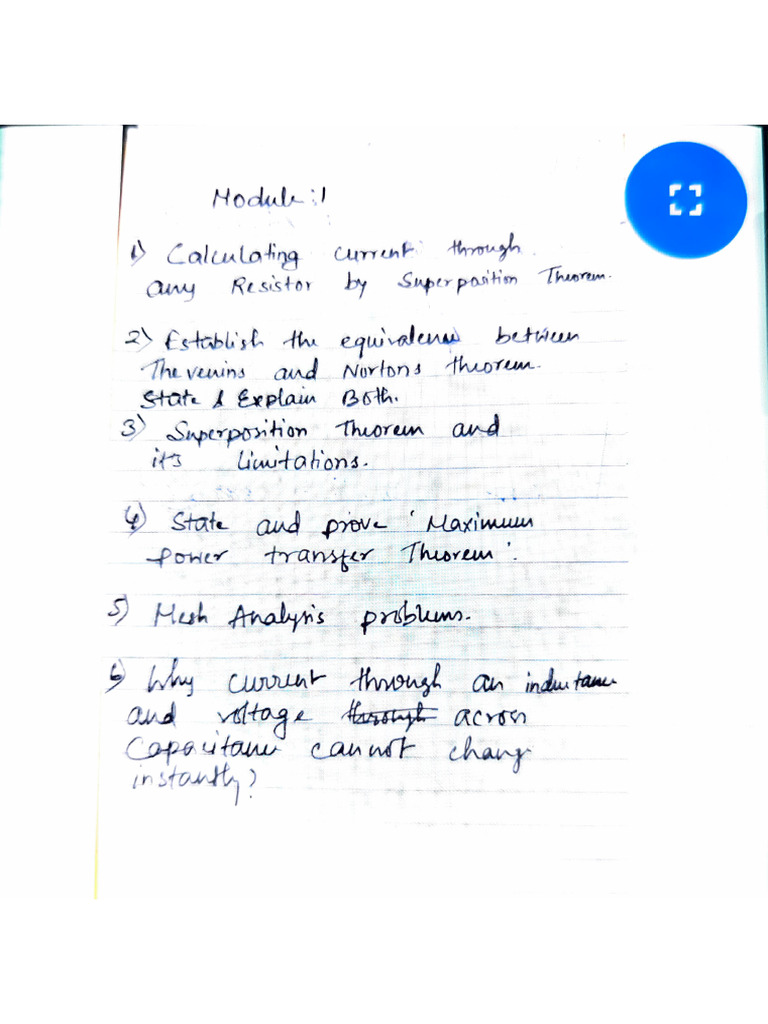 Module:1
1) Calculating current through
any Resistor by Superposition Theorem.
2) Establish the equivalence between
Thevenins and Nortons theorem.
State & Explain Both.
3) Superposition Theorem and
it's limitations.
4) State and prove 'Maximum
power transfer Theorem'.
5) Mesh Analysis problems.
6) Why current through an inductance
and voltage through across
Capacitance cannot change
instantly?